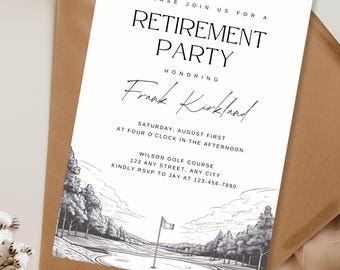 EASE JOIN US FOR A
RETIREMENT
PARTY
HONORING
Frank Kirkland
SATURDAY, AUGUST FIRST
AT FOUR O'CLOCK IN THE AFTERNOON
WILSON GOLF COURSE
123 ANY STREET, ANY CITY
KINDLY RSVP TO JAY AT 123-456-7890